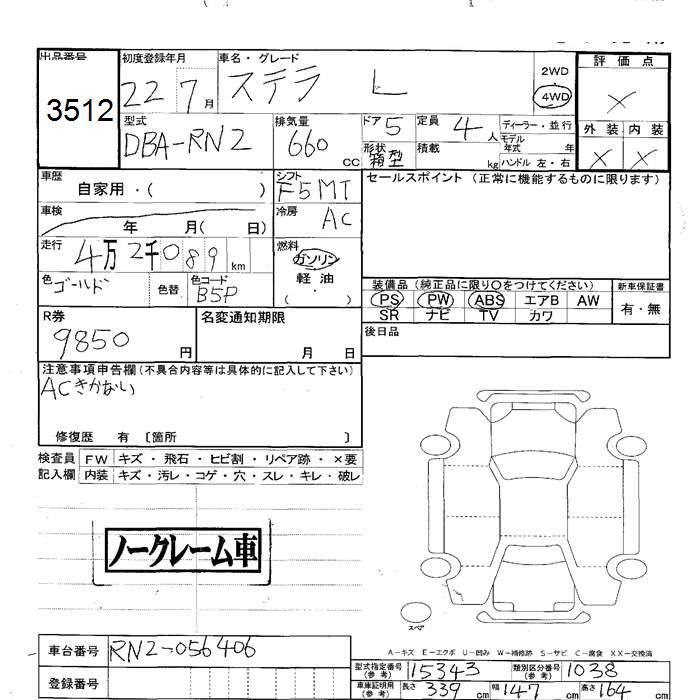 出品番号
3512
初度登録年月
22 7月
車名・グレード
ステラ L
2WD
4WD
評価点
×
型式
DBA-RN2
排気量
660 cc
ドア 5
形状 箱型
定員 4人
積載 kg
ディーラー・並行
モデル年式 年
ハンドル 左・右
外装 内装
× ×
車歴
自家用・( )
シフト
F5MT
セールスポイント (正常に機能するものに限ります)
車検
年 月( 日)
冷房
AC
走行
4万2千089 km
燃料
ガソリン
軽油
( ・ )
色
ゴールド
色替
色コード
B5P
装備品(純正品に限り○をつけてください)
新車保証書
PS PW ABS エアB AW
SR ナビ TV カワ
有・無
R券
9850 円
名変通知期限
月 日
後日品
注意事項申告欄(不具合内容等は具体的に記入して下さい)
ACきかない
修復歴 有 〔箇所 〕
検査員
記入欄
FW キズ・飛石・ヒビ割・リペア跡・×要
内装 キズ・汚レ・コゲ・穴・スレ・キレ・破レ
ノークレーム車
スペア
A-キズ E-エクボ U-凹み W-補修跡 S-サビ C-腐食 XX-交換済
車台番号
RN2-056406
登録番号
型式指定番号(参考) 15343
類別区分番号(参考) 1038
車庫証明用(参考) 長さ 339 cm 幅 147 cm 高さ 164 cm